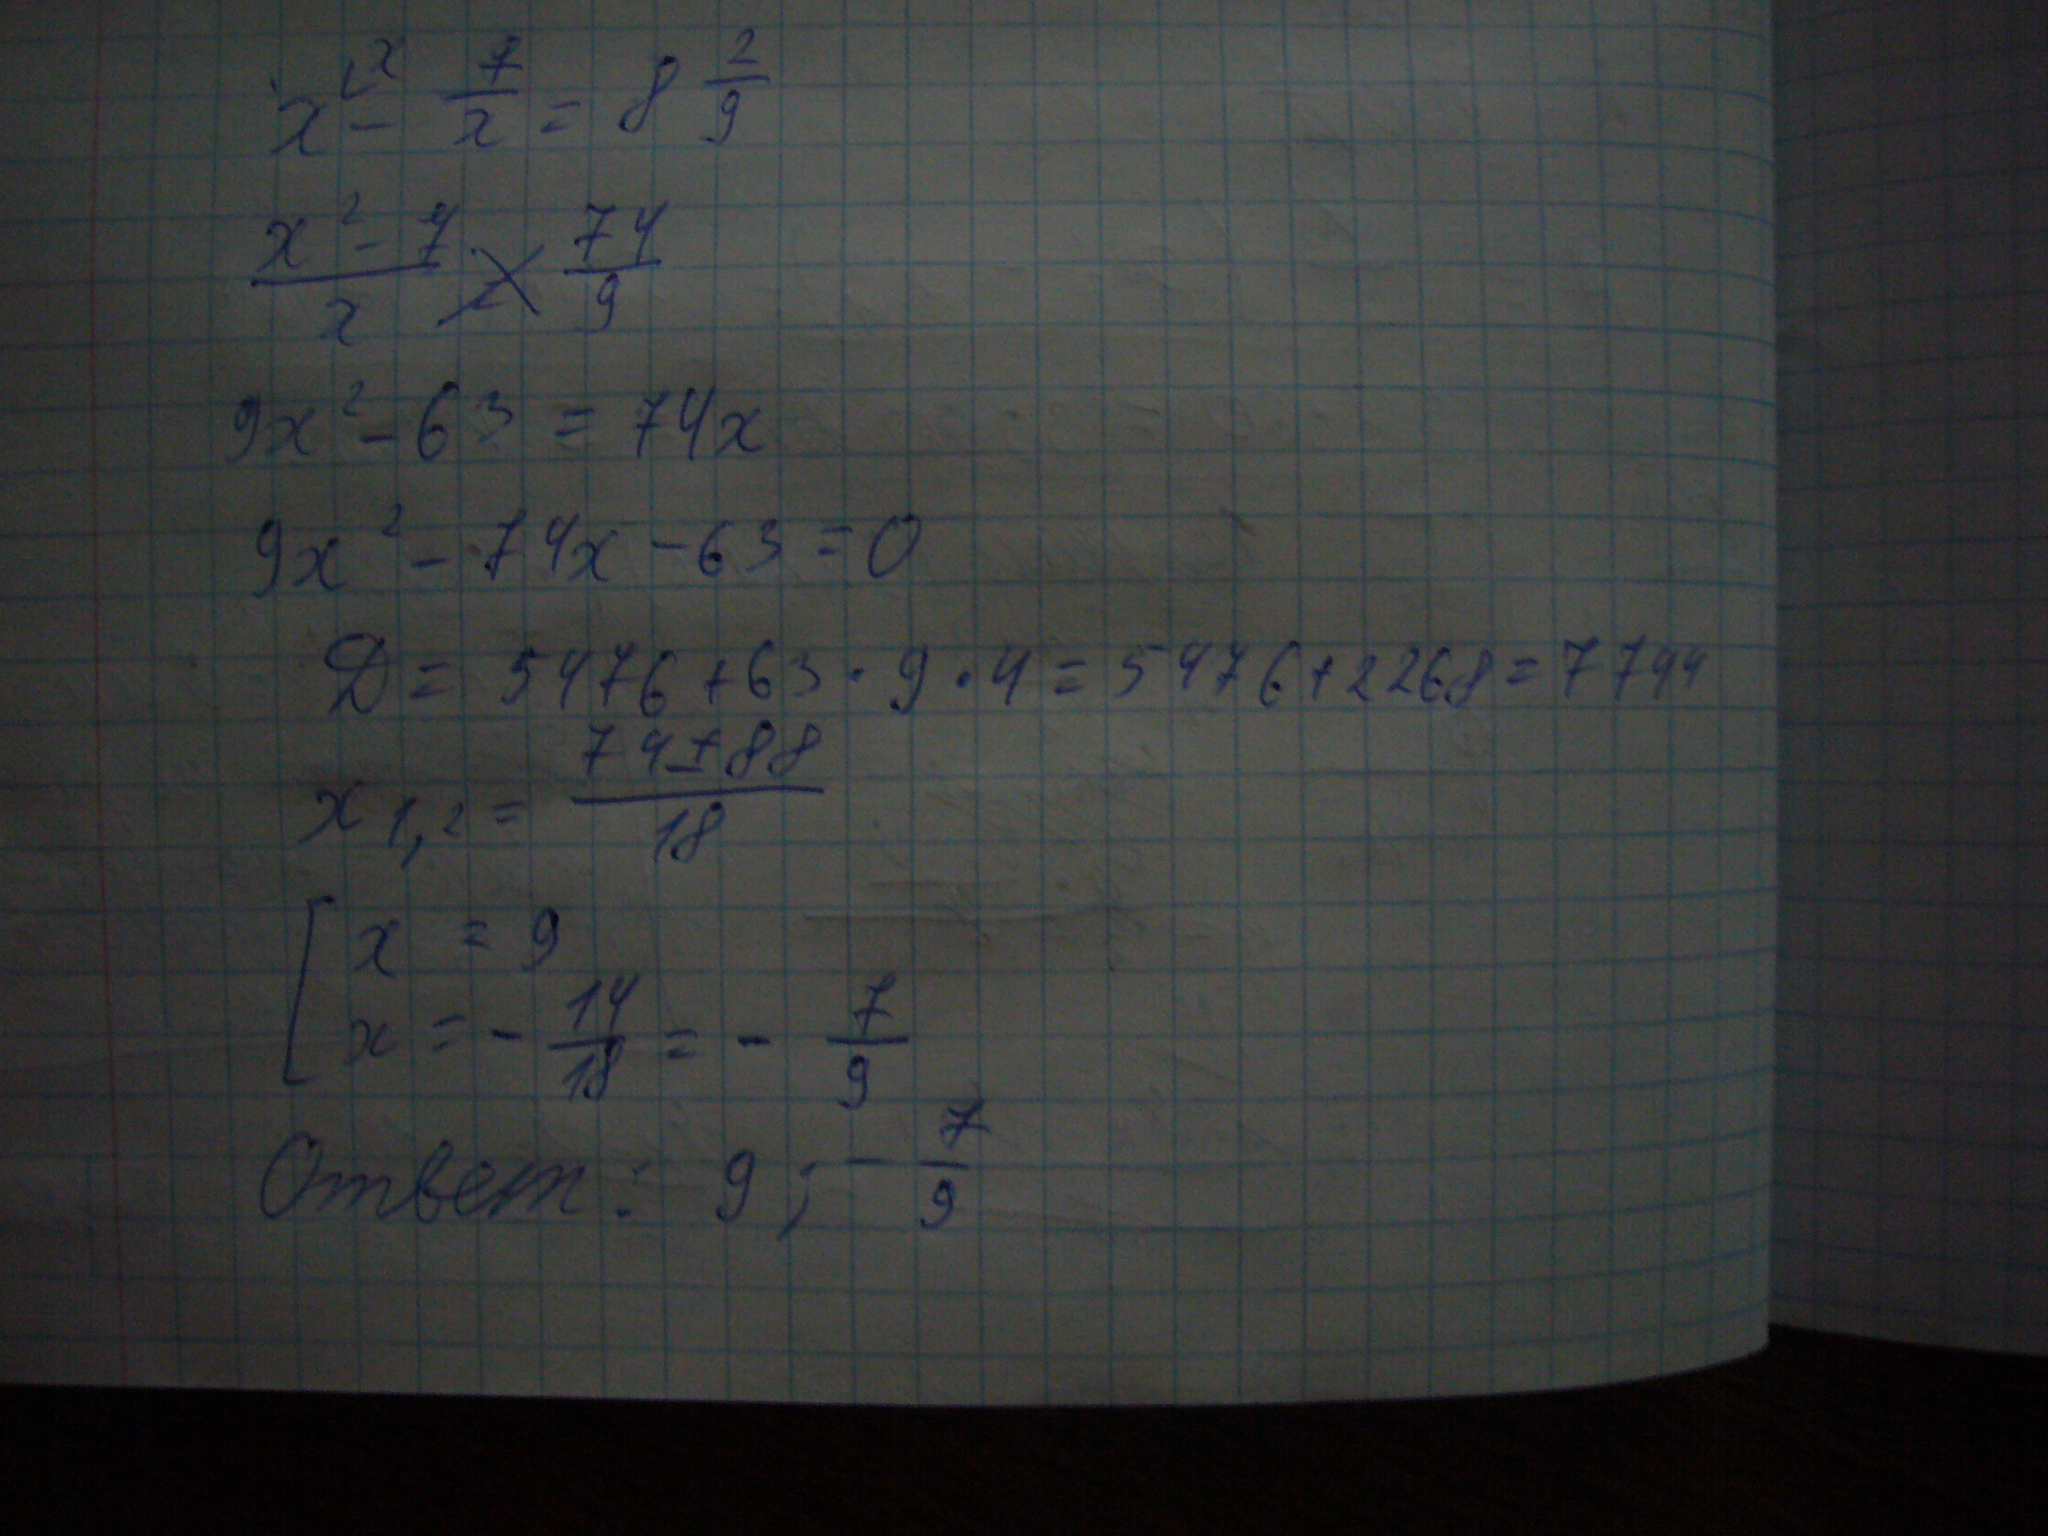 x^{(x} - 7/x = 8 2/9
(x² - 7)/x = 74/9
9x² - 63 = 74x
9x² - 74x - 63 = 0
D = 5476 + 63 · 9 · 4 = 5476 + 2268 = 7744
x 1,2 = (74 ± 88)/18
[ x = 9
x = - 14/18 = - 7/9
Ответ: 9; - 7/9